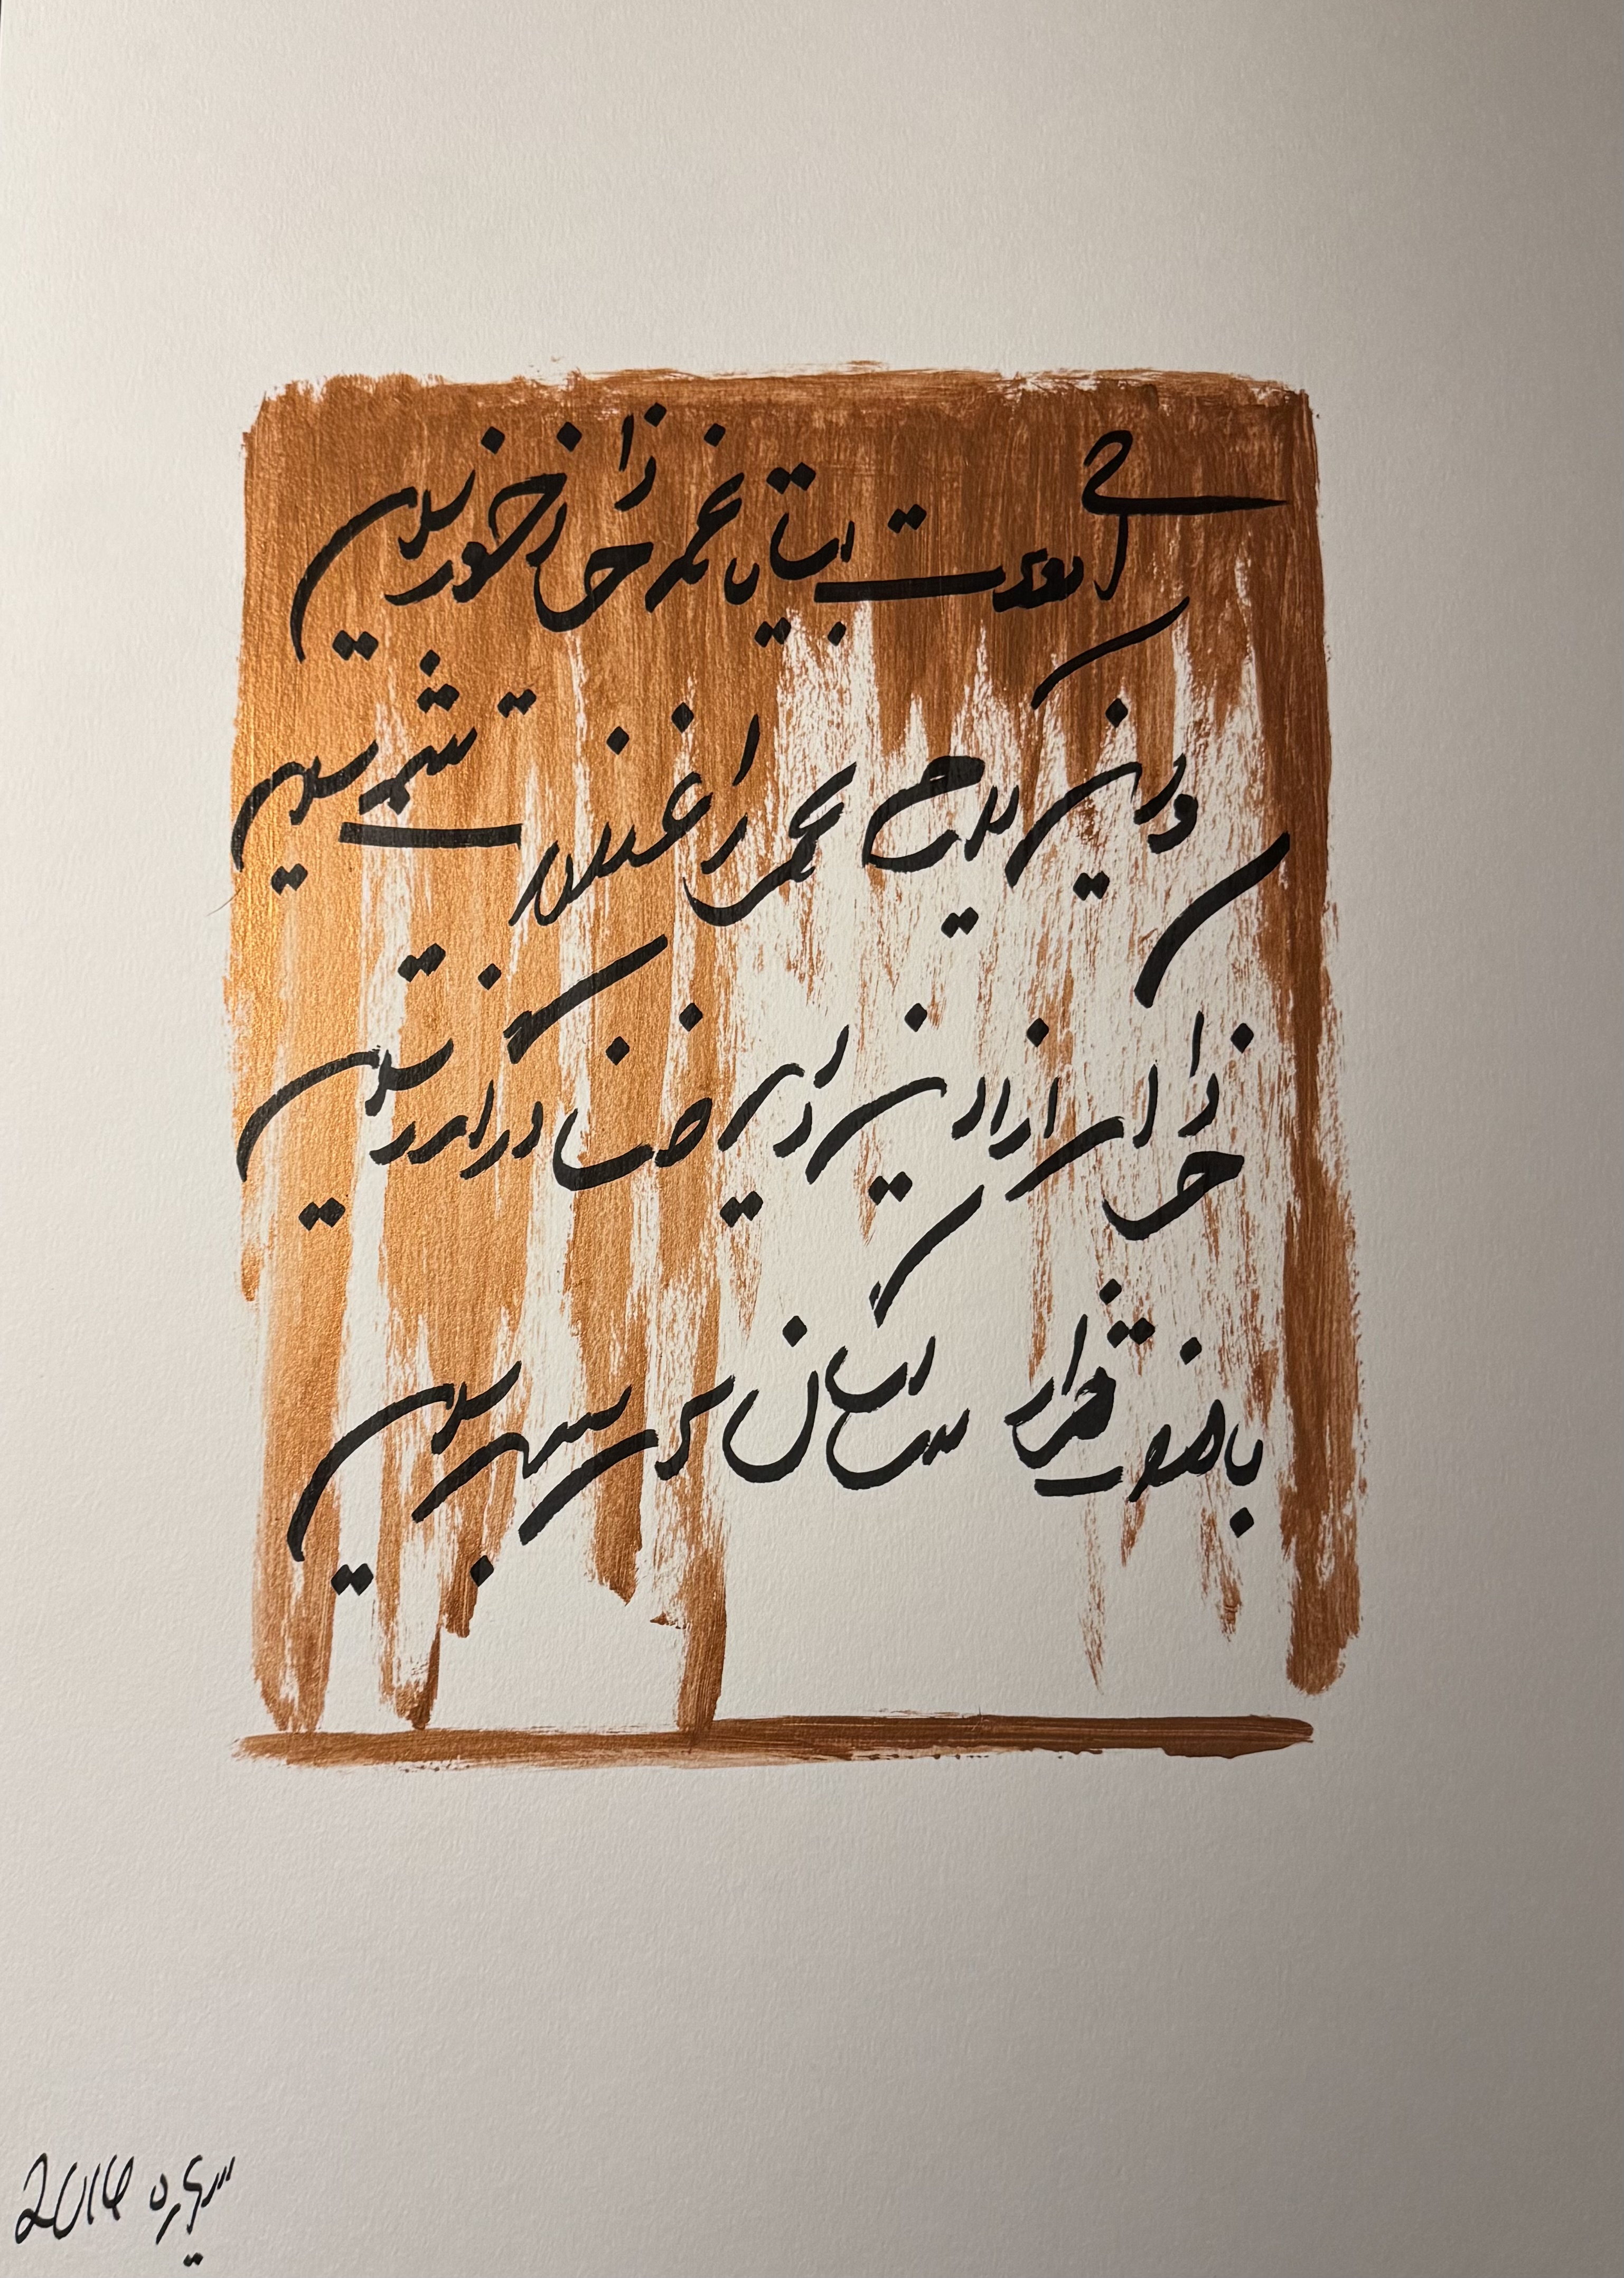 ای دوست بیا تا غم فردا نخوریم
وین یکدم عمر را غنیمت شمریم
فردا که ازین دیر فنا درگذریم
با هفت هزار سالگان سر بسریم
2016